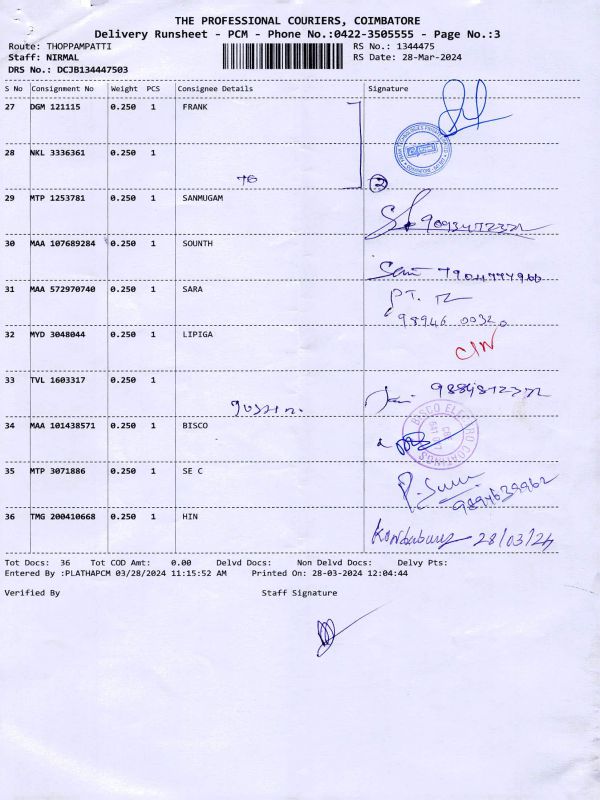 THE PROFESSIONAL COURIERS, COIMBATORE
Delivery Runsheet - PCM - Phone No.:0422-3505555 - Page No.:3
Route: THOPPAMPATTI RS No.: 1344475
Staff: NIRMAL RS Date: 28-Mar-2024
DRS No.: DCJB134447503
S No Consignment No Weight PCS Consignee Details Signature
27 DGM 121115 0.250 1 FRANK
28 NKL 3336361 0.250 1
2
29 MTP 1253781 0.250 1 SANMUGAM
30 MAA 107689284 0.250 1 SOUNTH
31 MAA 572970740 0.250 1 SARA
98946 00320
32 MYD 3048044 0.250 1 LIPIGA
33 TVL 1603317 0.250 1
34 MAA 101438571 0.250 1 BISCO
BISCO ELECTRO COATINGS
35 MTP 3071886 0.250 1 SE C
9894639962
36 TMG 200410668 0.250 1 HIN
28/03/24
Tot Docs: 36 Tot COD Amt: 0.00 Delvd Docs: Non Delvd Docs: Delvy Pts:
Entered By :PLATHAPCM 03/28/2024 11:15:52 AM Printed On: 28-03-2024 12:04:44
Verified By Staff Signature